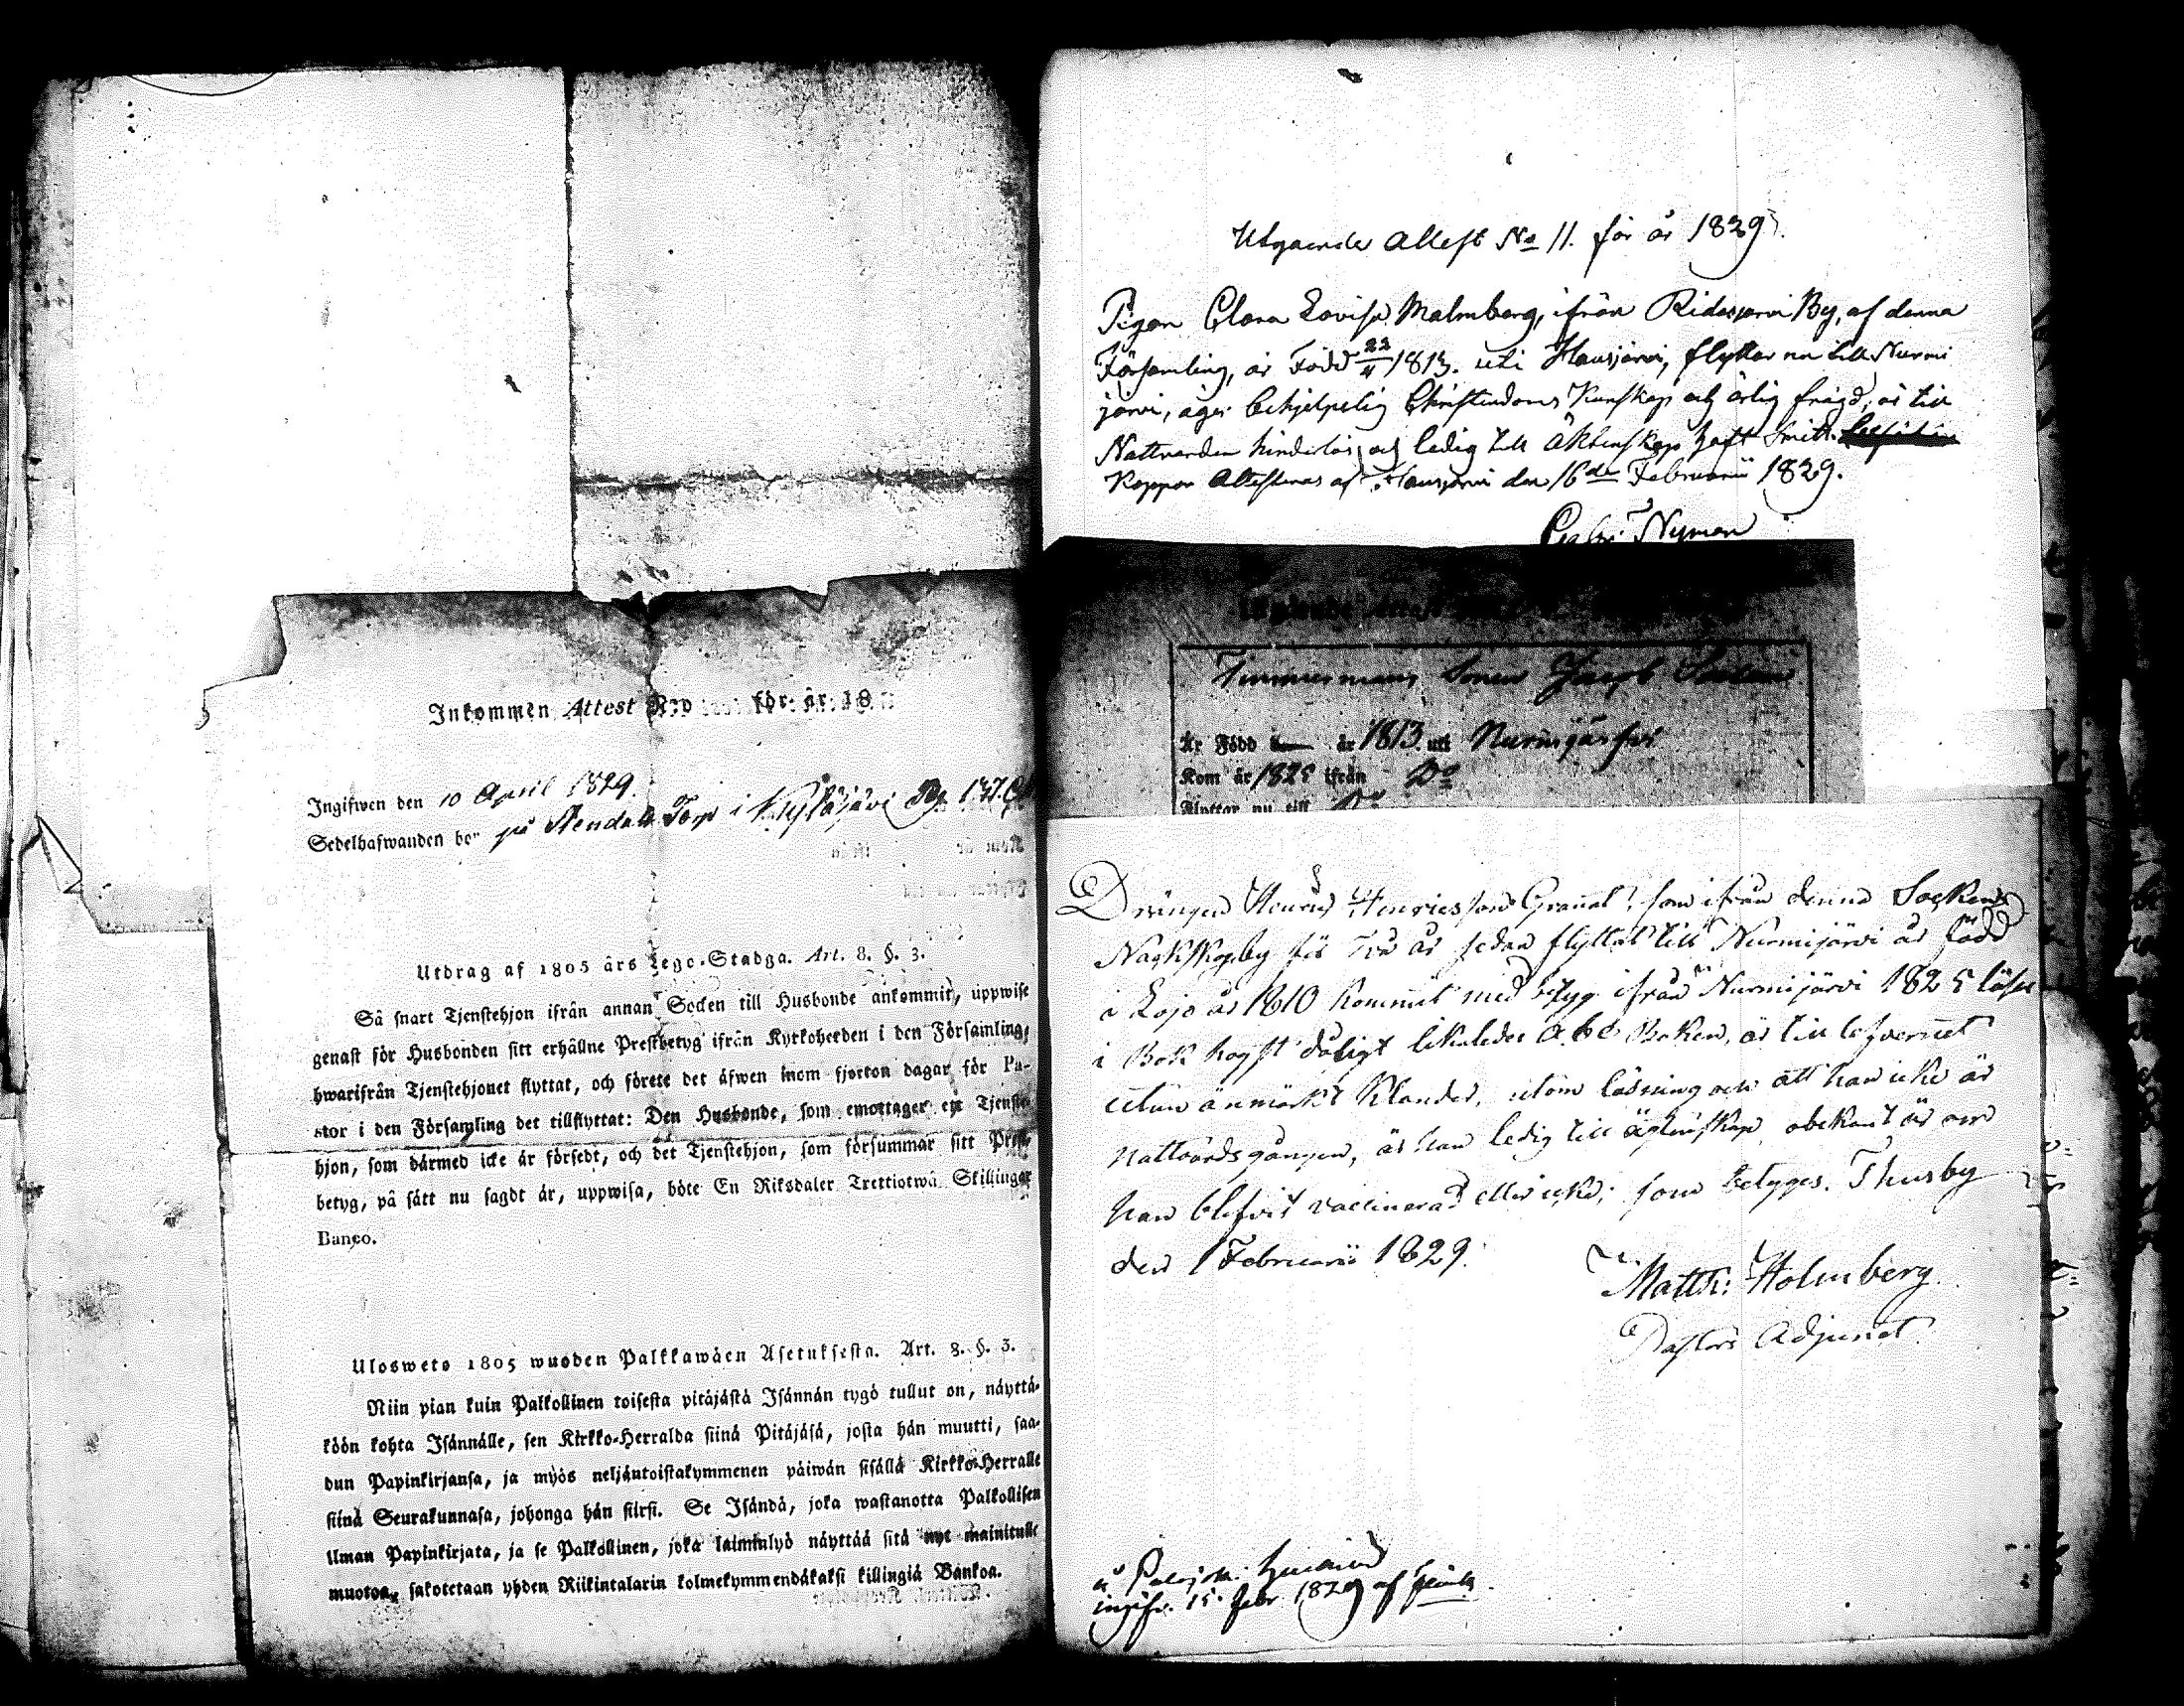 Inkommen Attest N:o för år 18
Ingifwen den 10 April 1829.
Sedelhafwanden bor på Stendals Torp i Kyläjärvi
Utdrag af 1805 års Lego-Stadga. Art. 8. §. 3.
Så snart Tjenstehjon ifrån annan Socken till Husbonde ankommit, uppwise
genast för Husbonden sitt erhållne Prestbetyg ifrån Kyrkoherden i den Församling,
hwarifrån Tjenstehjonet flyttat, och förete det äfwen inom fjorton dagar för Pa-
stor i den Församling det tillflyttat: Den Husbonde, som emottager ett Tjenste-
hjon, som därmed icke är försedt, och det Tjenstehjon, som försummar sitt Prest-
betyg, på sätt nu sagdt är, uppwisa, böte En Riksdaler Trettiotwå Skillingar
Banco.
Ulosweto 1805 wuoden Palkkawäen Asetuksesta. Art. 8. §. 3.
Niin pian kuin Palkollinen toisesta pitäjästä Isännän tygö tullut on, näyttä-
köön kohta Isännälle, sen Kirkko-Herralda siinä Pitäjäsä, josta hän muutti, saa-
dun Papinkirjansa, ja myös neljäntoistakymmenen päiwän sisällä Kirkko-Herralle
siinä Seurakunnasa, johonga hän siirsi. Se Isändä, joka wastanotta Palkollisen
ilman Papinkirjata, ja se Palkollinen, joka laiminlyö näyttää sitä nyt mainitulle
muotoa, sakotetaan yhden Riikintalarin kolmekymmendäkaksi killingiä Bankoa.
Utgaende Attest No 11. för år 1829.
Pigan Clara Lovisa Malmberg, ifrån Ridasjarvi By, af denna
Församling, är Född 22/4 1813. uti Hausjärvi, flyttar nu till Nurmi
jarvi, äger behjelpelig Christendoms Kunskap och ärlig frägd, är till
Nattvarden hinderlös, och ledig till Äktenskap haft Smitt
Koppor Attesteras af Hausjärvi den 16de Februarii 1829.
Nyman
Timmermans Sonen Jacob
Är Född år 1813 uti Nurmijärfvi
Kom år 1825 ifrån Do
Flyttar nu till Do
Drängen Henric Henricsson Granat, som ifrån denna Sockens
Nackskogby för Tre år sedan flyttat till Nurmijärvi är född
i Lojo år 1810 kommit med betyg ifrån Nurmijärvi 1825 läser
i Bok högst dåligt likaledes A.b.c. Boken, är till lefvernet
utan anmärkt klander, utom läsning och att han icke är
nattvardsgången, är han ledig till ägtenskap, obekant är om
han blifvit vaccinerad eller icke; som betyges. Thusby
den 1 Februarii 1829.
Matth: Holmberg.
Pastors Adjunct.
ingifv. 15 febr 1829 af